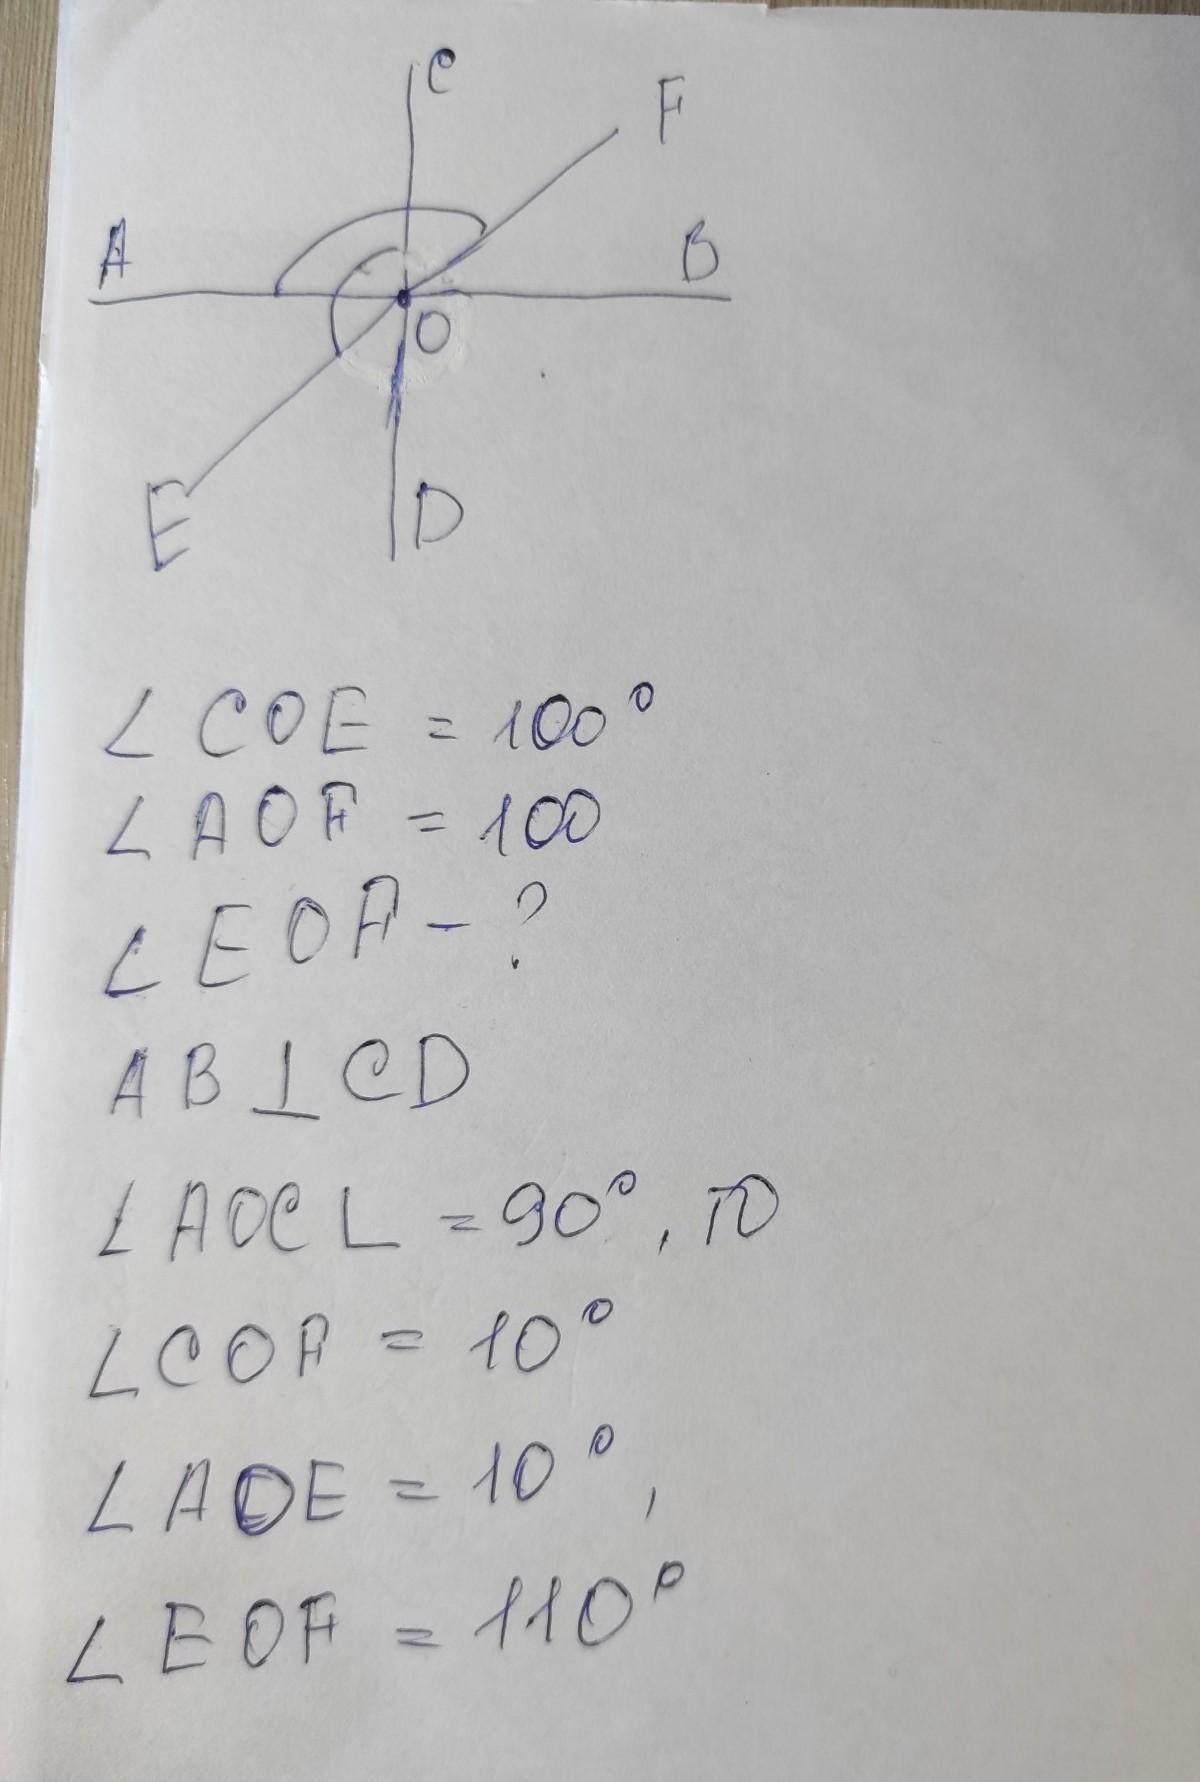 C
F
A
B
O
E
D
∠COE = 100°
∠AOF = 100
∠EOF - ?
AB⊥CD
∠AOC L = 90°, то
∠COF = 10°
∠AOE = 10°,
∠EOF = 110°